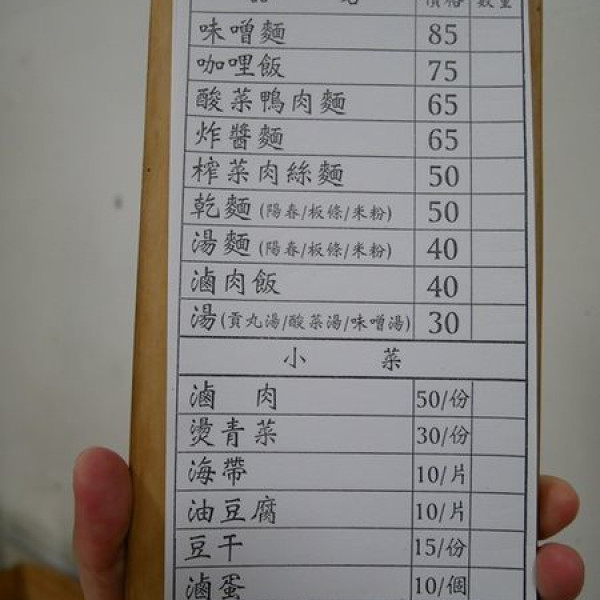 品 名 價格 數量
味噌麵 85
咖哩飯 75
酸菜鴨肉麵 65
炸醬麵 65
榨菜肉絲麵 50
乾麵(陽春/板條/米粉) 50
湯麵(陽春/板條/米粉) 40
滷肉飯 40
湯(貢丸湯/酸菜湯/味噌湯) 30
小 菜
滷 肉 50/份
燙青菜 30/份
海帶 10/片
油豆腐 10/片
豆干 15/份
滷蛋 10/個